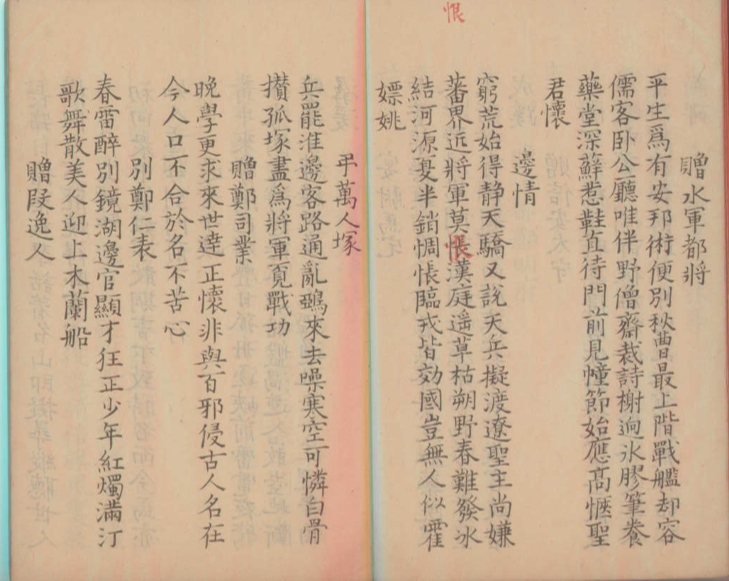 恨
贈水軍都將
平生爲有安邦術便别秋曹最上階戰艦却容
儒客卧公廳唯伴野僧齋裁詩榭迥氷膠筆養
藥堂深蘚惹鞋直待門前見幢節始應髙愜聖
君懷
邊情
窮荒始得静天驕又說天兵擬渡遼聖主尚嫌
蕃界近將軍莫悵漢庭遥草枯朔野春難發氷
結河源夏半銷惆悵臨戎皆効國豈無人似霍
嫖姚
平萬人塚
兵罷淮邊客路通亂鵶來去噪寒空可憐白骨
攅孤塚盡爲將軍覓戰功
贈鄭司業
晚學更求來世達正懷非與百邪侵古人名在
今人口不合於名不苦心
别鄭仁表
春雷醉别鏡湖邊官顯才狂正少年紅燭滿汀
歌舞散美人迎上木蘭船
贈叚逸人